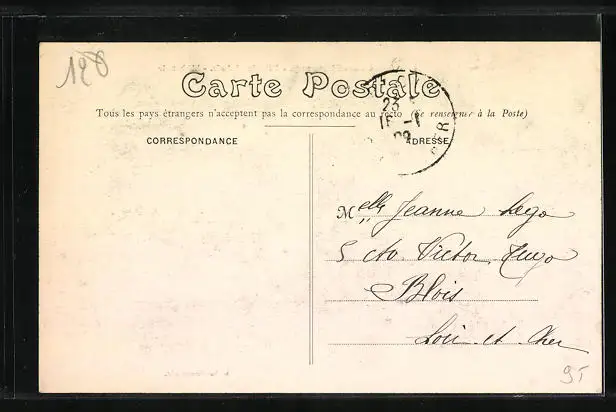 128
Carte Postale
Tous les pays étrangers n'acceptent pas la correspondance au recto (Se renseigner à la Poste)
CORRESPONDANCE
ADRESSE
23
09
Melle Jeanne
5 Victor Hugo
Blois
Loir et Cher
95